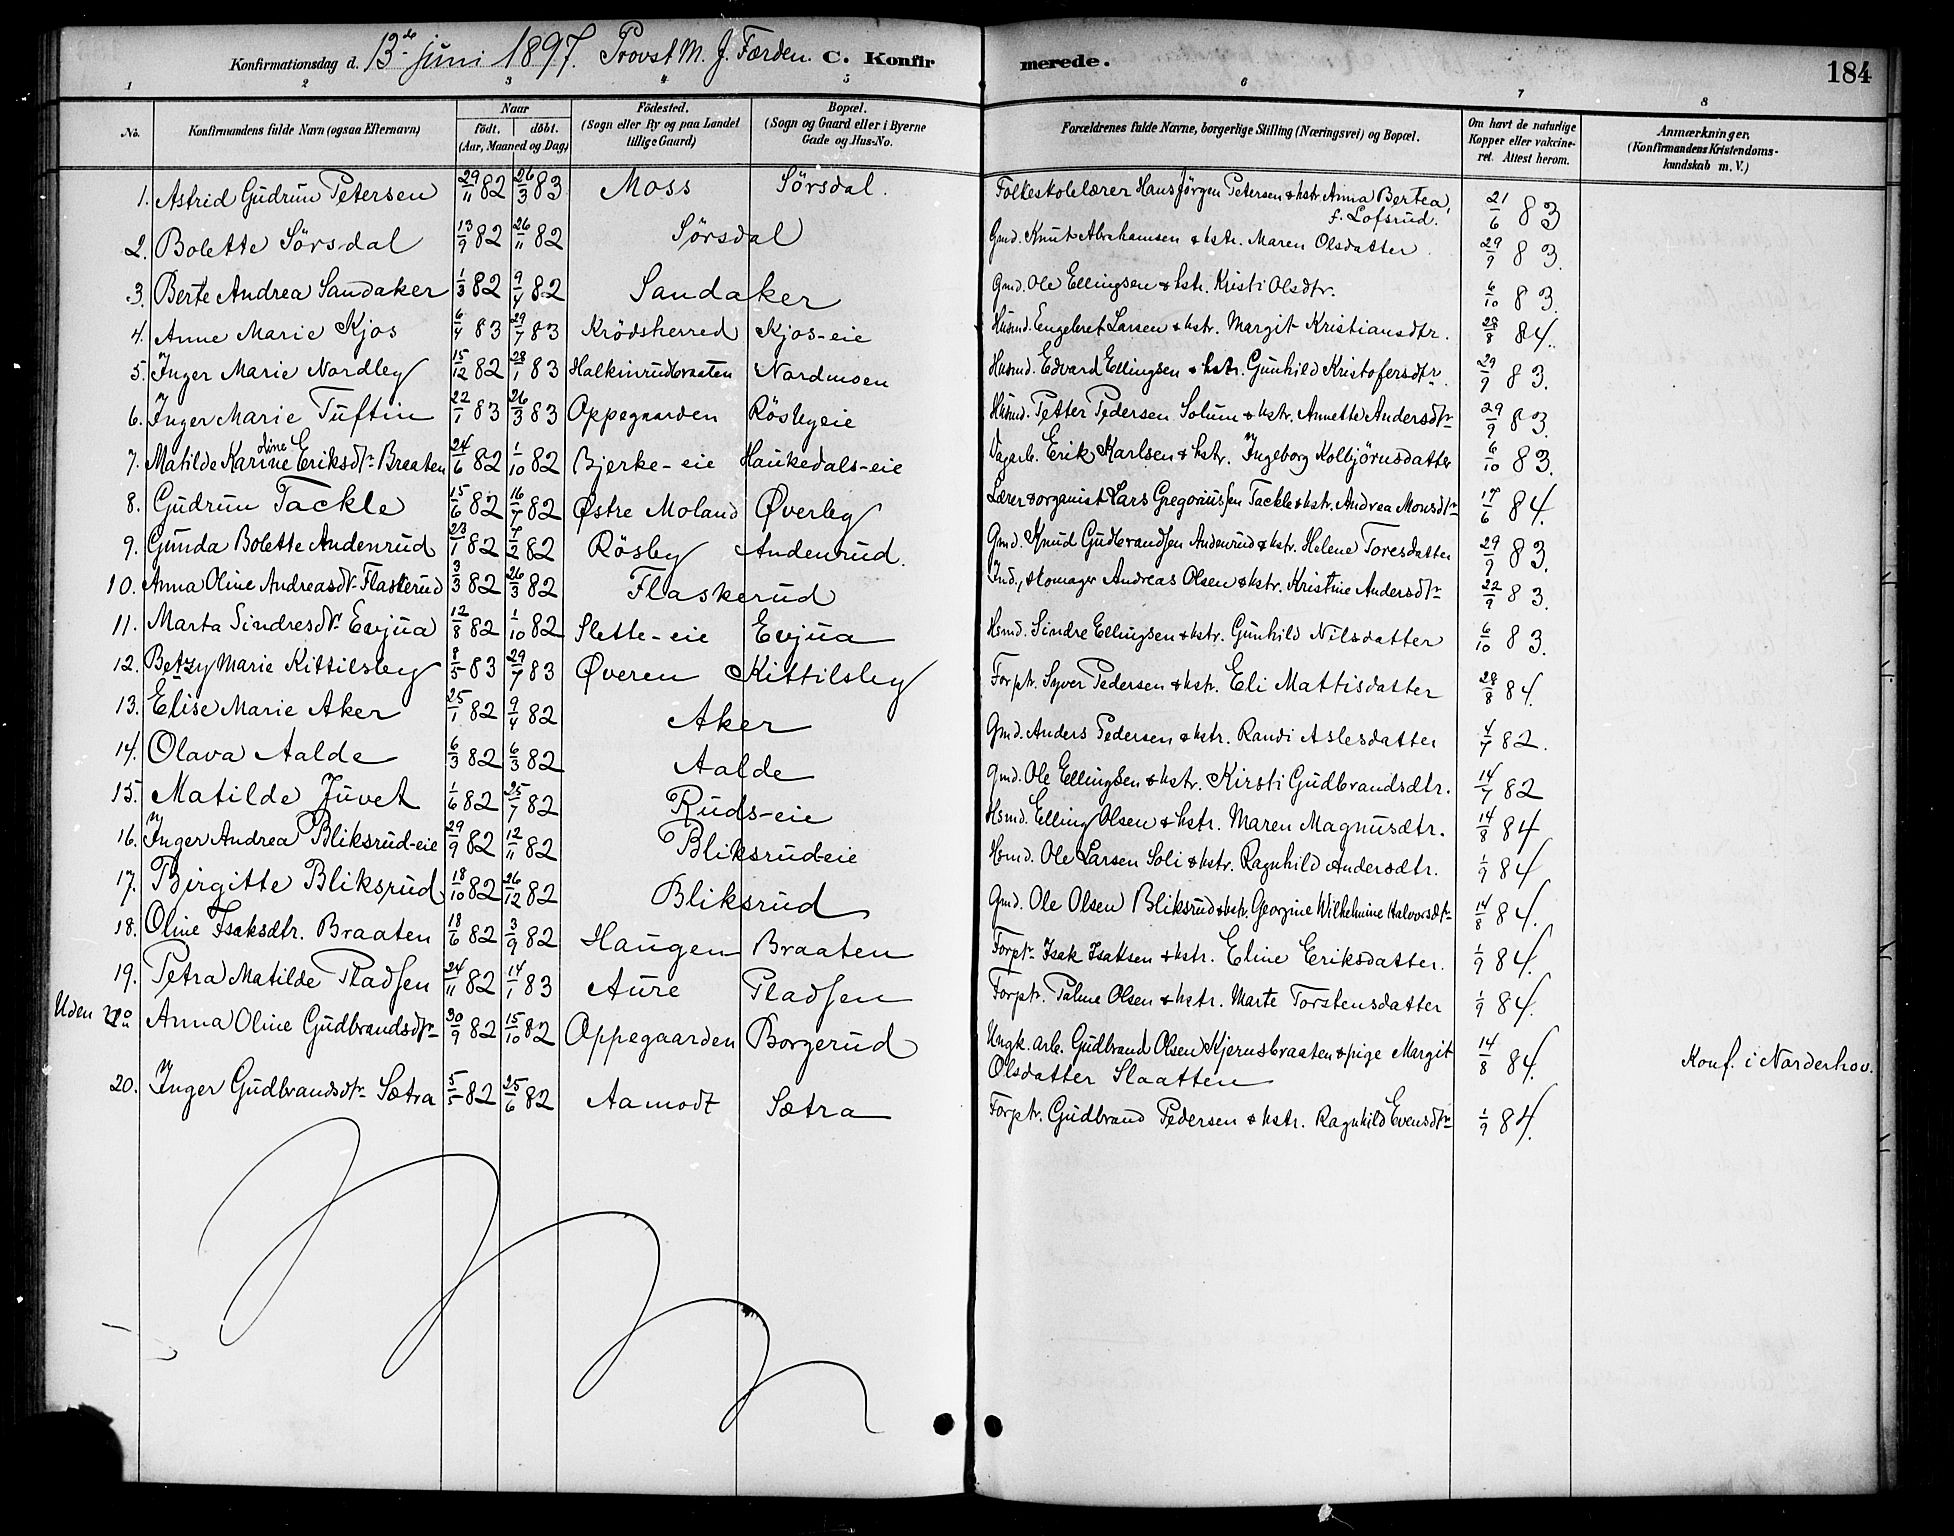 Konfirmationsdag d. 13de juni 1897. Provst M. J. Færden. C. Konfirmerede. 184
1 2 3 4 5 6 7 8
No. Konfirmandens fulde Navn (ogsaa Efternavn) Naar født. døbt. (Aar, Maaned og Dag) Fødested. (Sogn eller By og paa Landet tillige Gaard) Bopæl. (Sogn og Gaard eller i Byerne Gade og Hus-No. Forældrenes fulde Navne, borgerlige Stilling (Næringsvei) og Bopæl. Om havt de naturlige Kopper eller vakcineret. Attest herom. Anmærkninger, (Konfirmandens Kristendomskundskab m. V.)
1. Astrid Gudrun Petersen 29/11 82 26/3 83 Moss Sörsdal. Folkeskolelærer Hans Jörgen Petersen & hstr. Anna Bertea, f. Lofsrud. 21/6 83
2. Bolette Sörsdal 13/9 82 26/11 82 Sörsdal Gmd. Knut Abrahamsen & hstr. Maren Olsdatter. 29/9 83.
3. Berte Andrea Sandaker 1/3 82 9/4 82 Sandaker Gmd. Ole Ellingsen & hstr. Kristi Olsdtr. 6/10 83.
4. Anne Marie Kjos 6/4 83 29/7 83 Krödsherred Kjos-eie Husmd. Engebret Larsen & hstr. Margit Kristiansdtr. 28/8 84.
5. Inger Marie Nordby 15/12 82 28/1 83 Halkinrudbraaten Nordmoen Husmd. Edvard Ellingsen & hstr. Gunhild Kristofersdtr. 29/9 83.
6. Inger Marie Tuftin 22/1 83 26/3 83 Oppegaarden Rösbyeie Husmd. Petter Pedersen Solum & hstr. Annette Andersdtr 29/9 83.
7. Matilde Karine oline Eriksdtr Braaten 24/6 82 1/10 82 Bjerke-eie Haukedals-eie Vagarb. Erik Karlsen & hstr. Ingeborg Kolbjörnsdatter 6/10 83.
8. Gudrun Tackle 15/6 82 16/7 82 Østre Moland Øverby Lærer & organist Lars Gregoriussen Tackle & hstr. Andrea Monsdtr 17/6 84.
9. Gunda Bolette Andenrud 23/1 82 7/2 82 Rösby Andenrud. Gmd. Knud Gudbrandsen Andenrud & hstr. Helene Toresdatter 29/9 83.
10. Anna Oline Andreasdtr Flaskerud 3/3 82 26/3 82 Flaskerud Ind., skomager Andreas Olsen & hstr. Kristine Andersdtr 22/9 83.
11. Marta Sindresdtr Evjua 12/8 82 1/10 82 Slette-eie Evjua Hsmd. Sindre Ellingsen & hstr. Gunhild Nilsdatter 6/10 83.
12. Betzy Marie Kittilsby 8/5 83 29/7 83 Øveren Kittilsby Forptr. Syver Pedersen & hstr. Eli Mattisdatter 28/8 84.
13. Elise Marie Aker 25/1 82 9/4 82 Aker Gmd. Anders Pedersen & hstr. Randi Aslesdatter 4/7 82.
14. Olava Aalde 6/3 82 6/3 82 Aalde Gmd. Ole Ellingsen & hstr. Kirsti Gudbrandsdtr. 14/7 82
15. Matilde Juvet 1/6 82 25/7 82 Ruds-eie Hsmd. Elling Olsen & hstr. Maren Magnusdtr. 14/8 84
16. Inger Andrea Bliksrud-eie 29/9 82 12/11 82 Bliksrud-eie Hsmd. Ole Larsen Soli & hstr. Ragnhild Andersdtr. 1/9 84
17. Birgitte Bliksrud 18/10 82 26/12 82 Bliksrud Gmd. Ole Olsen Bliksrud & hstr. Georgine Wilhelmine Halvorsdtr 14/8 84.
18. Oline Isaksdtr. Braaten 18/6 82 3/9 82 Haugen Braaten Forptr Isak Isaksen & hstr. Eline Eriksdatter. 1/9 84.
19. Petra Matilde Pladsen 24/11 82 14/1 83 Aure Pladsen Forptr. Palme Olsen & hstr. Marte Torstensdatter 1/9 84.
Uden No Anna Oline Gudbrandsdtr 30/9 82 15/10 82 Oppegaarden Borgerud Ungk. arb. Gudbrand Olsen Kjernsbraaten & pige Margit Olsdatter Slaatten 14/8 84. Konf. i Norderhov.
20. Inger Gudbrandsdtr Sætra 5/5 82 25/6 82 Aamodt Sætra Forptr. Gudbrand Pedersen & hstr. Ragnhild Evensdtr 1/9 84.